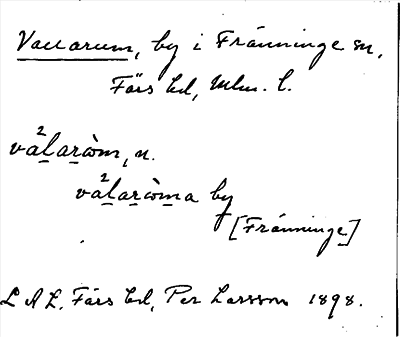 Vallarum, by i Fränninge sn,
Färs hd, Mlm. l.
va²l̲ar̲òm, n.
va²l̲ar̲òm̲a by
[Fränninge]
L A L, Färs hd, Per Larsson 1898.